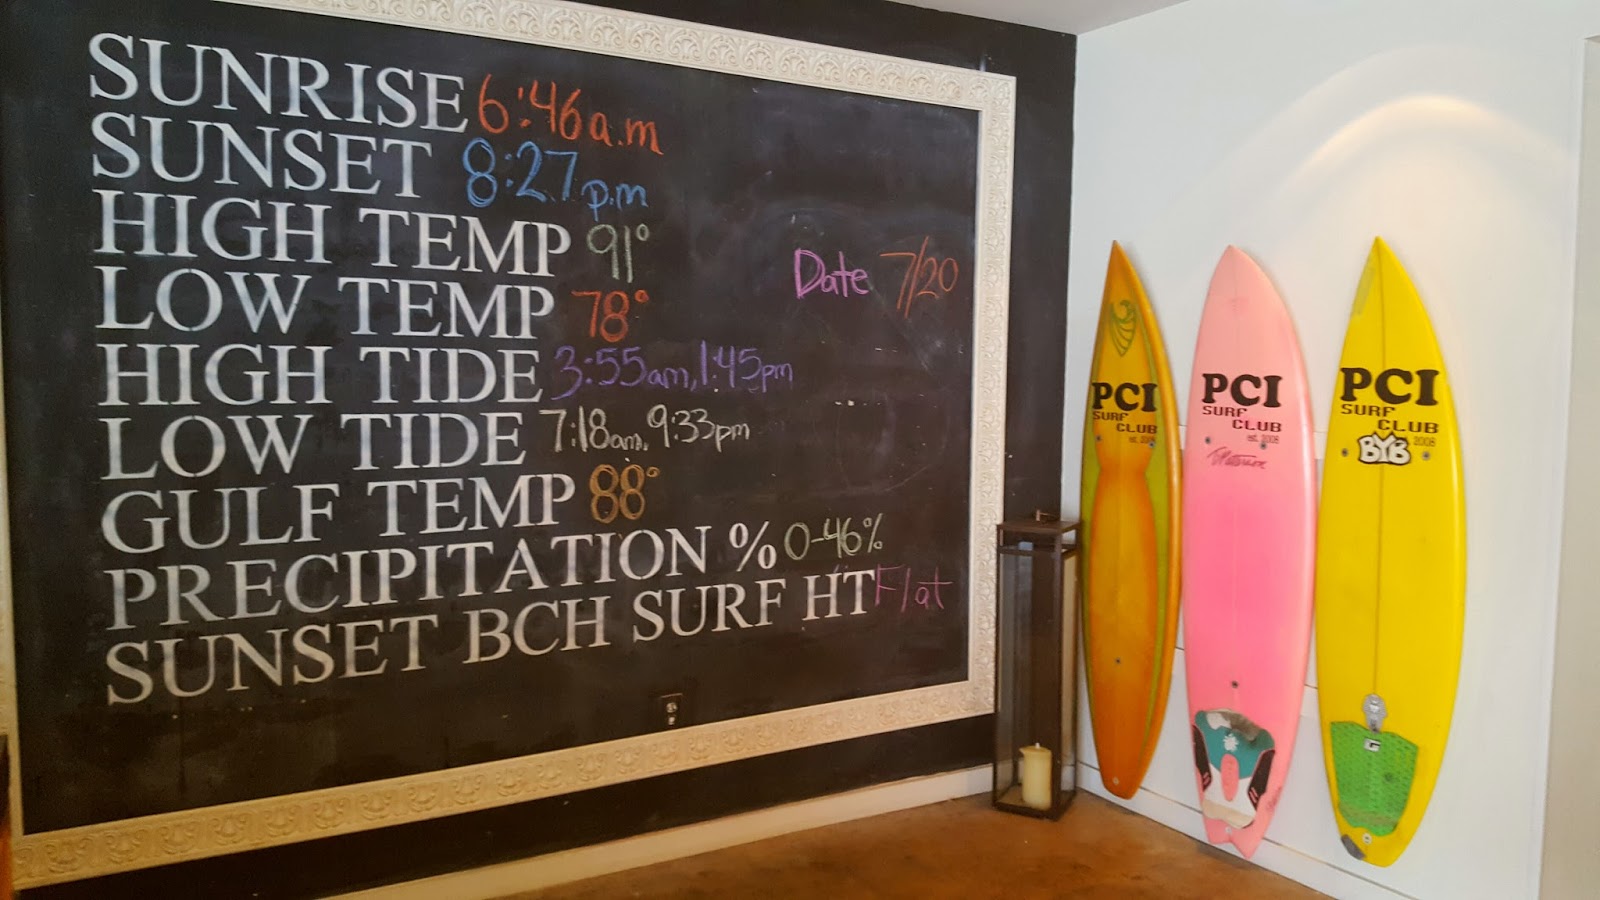 SUNRISE 6:46a.m
SUNSET 8:27p.m
HIGH TEMP 91°
LOW TEMP 78°
HIGH TIDE 3:55am, 1:45pm
LOW TIDE 7:18am, 9:33pm
GULF TEMP 88°
PRECIPITATION % 0-46%
SUNSET BCH SURF HT Flat
Date 7/20
PCI
SURF
CLUB
est. 2008
PCI
SURF
CLUB
est. 2008
PCI
SURF
CLUB
BYB 2008